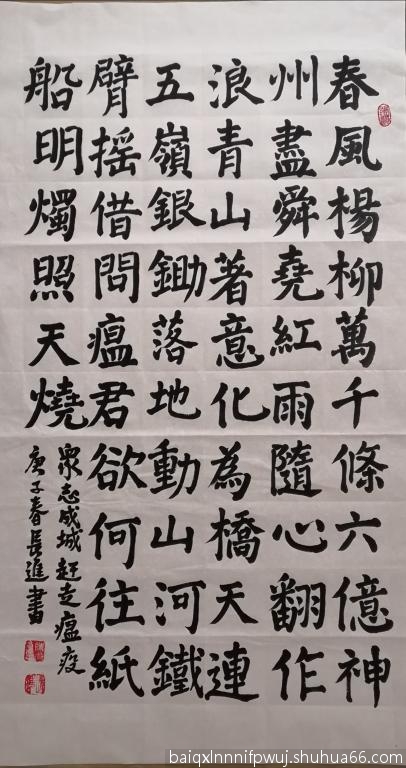 春風楊柳萬千條六億神
州盡舜堯紅雨隨心翻作
浪青山著意化為橋天連
五嶺銀鋤落地動山河鐵
臂摇借問瘟君欲何往紙
船明燭照天燒
眾志成城赶走瘟疫
庚子春長進書
baiqxlnnnifpwuj.shuhua66.com